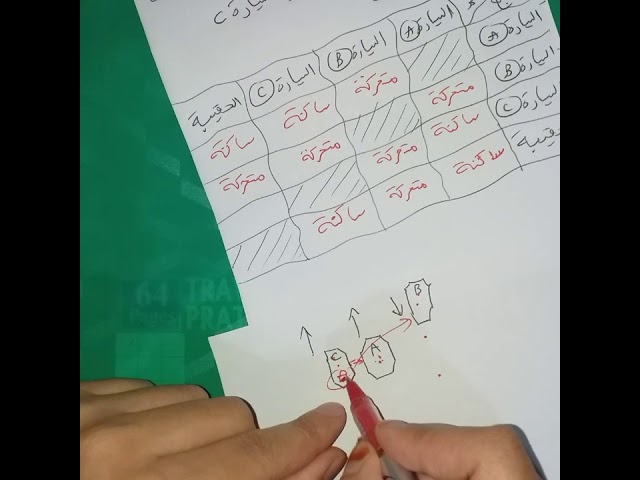 السيارة C
السيارة A السيارة B السيارة C الحقيبة
السيارة A متحركة ساكنة ساكنة
السيارة B متحركة متحركة متحركة
السيارة C ساكنة متحركة
ساكنة متحركة ساكنة
B
A
C
64
Pages